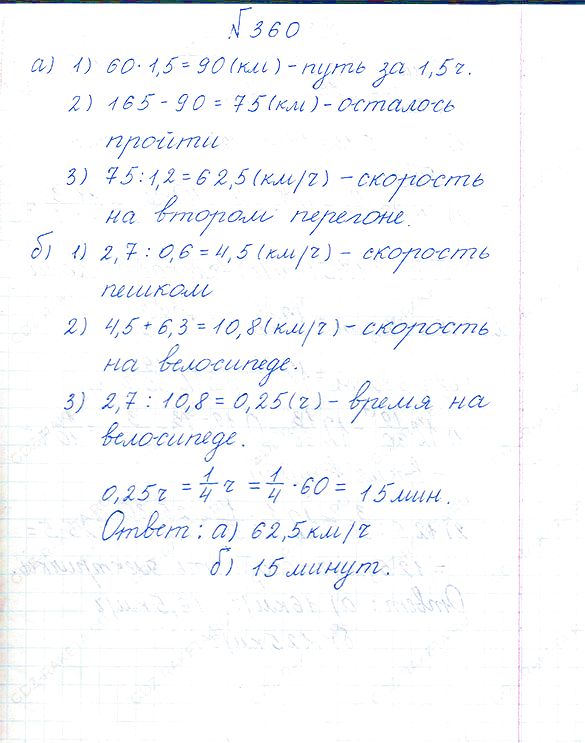 №360
а) 1) 60·1,5=90(км)-путь за 1,5ч.
2) 165-90=75(км)-осталось
пройти
3) 75:1,2=62,5(км/ч)-скорость
на втором перегоне.
б) 1) 2,7:0,6=4,5(км/ч)-скорость
пешком
2) 4,5+6,3=10,8(км/ч)-скорость
на велосипеде.
3) 2,7:10,8=0,25(ч)-время на
велосипеде.
0,25ч = 1/4 ч = 1/4 · 60 = 15мин.
Ответ: а) 62,5км/ч
б) 15минут.